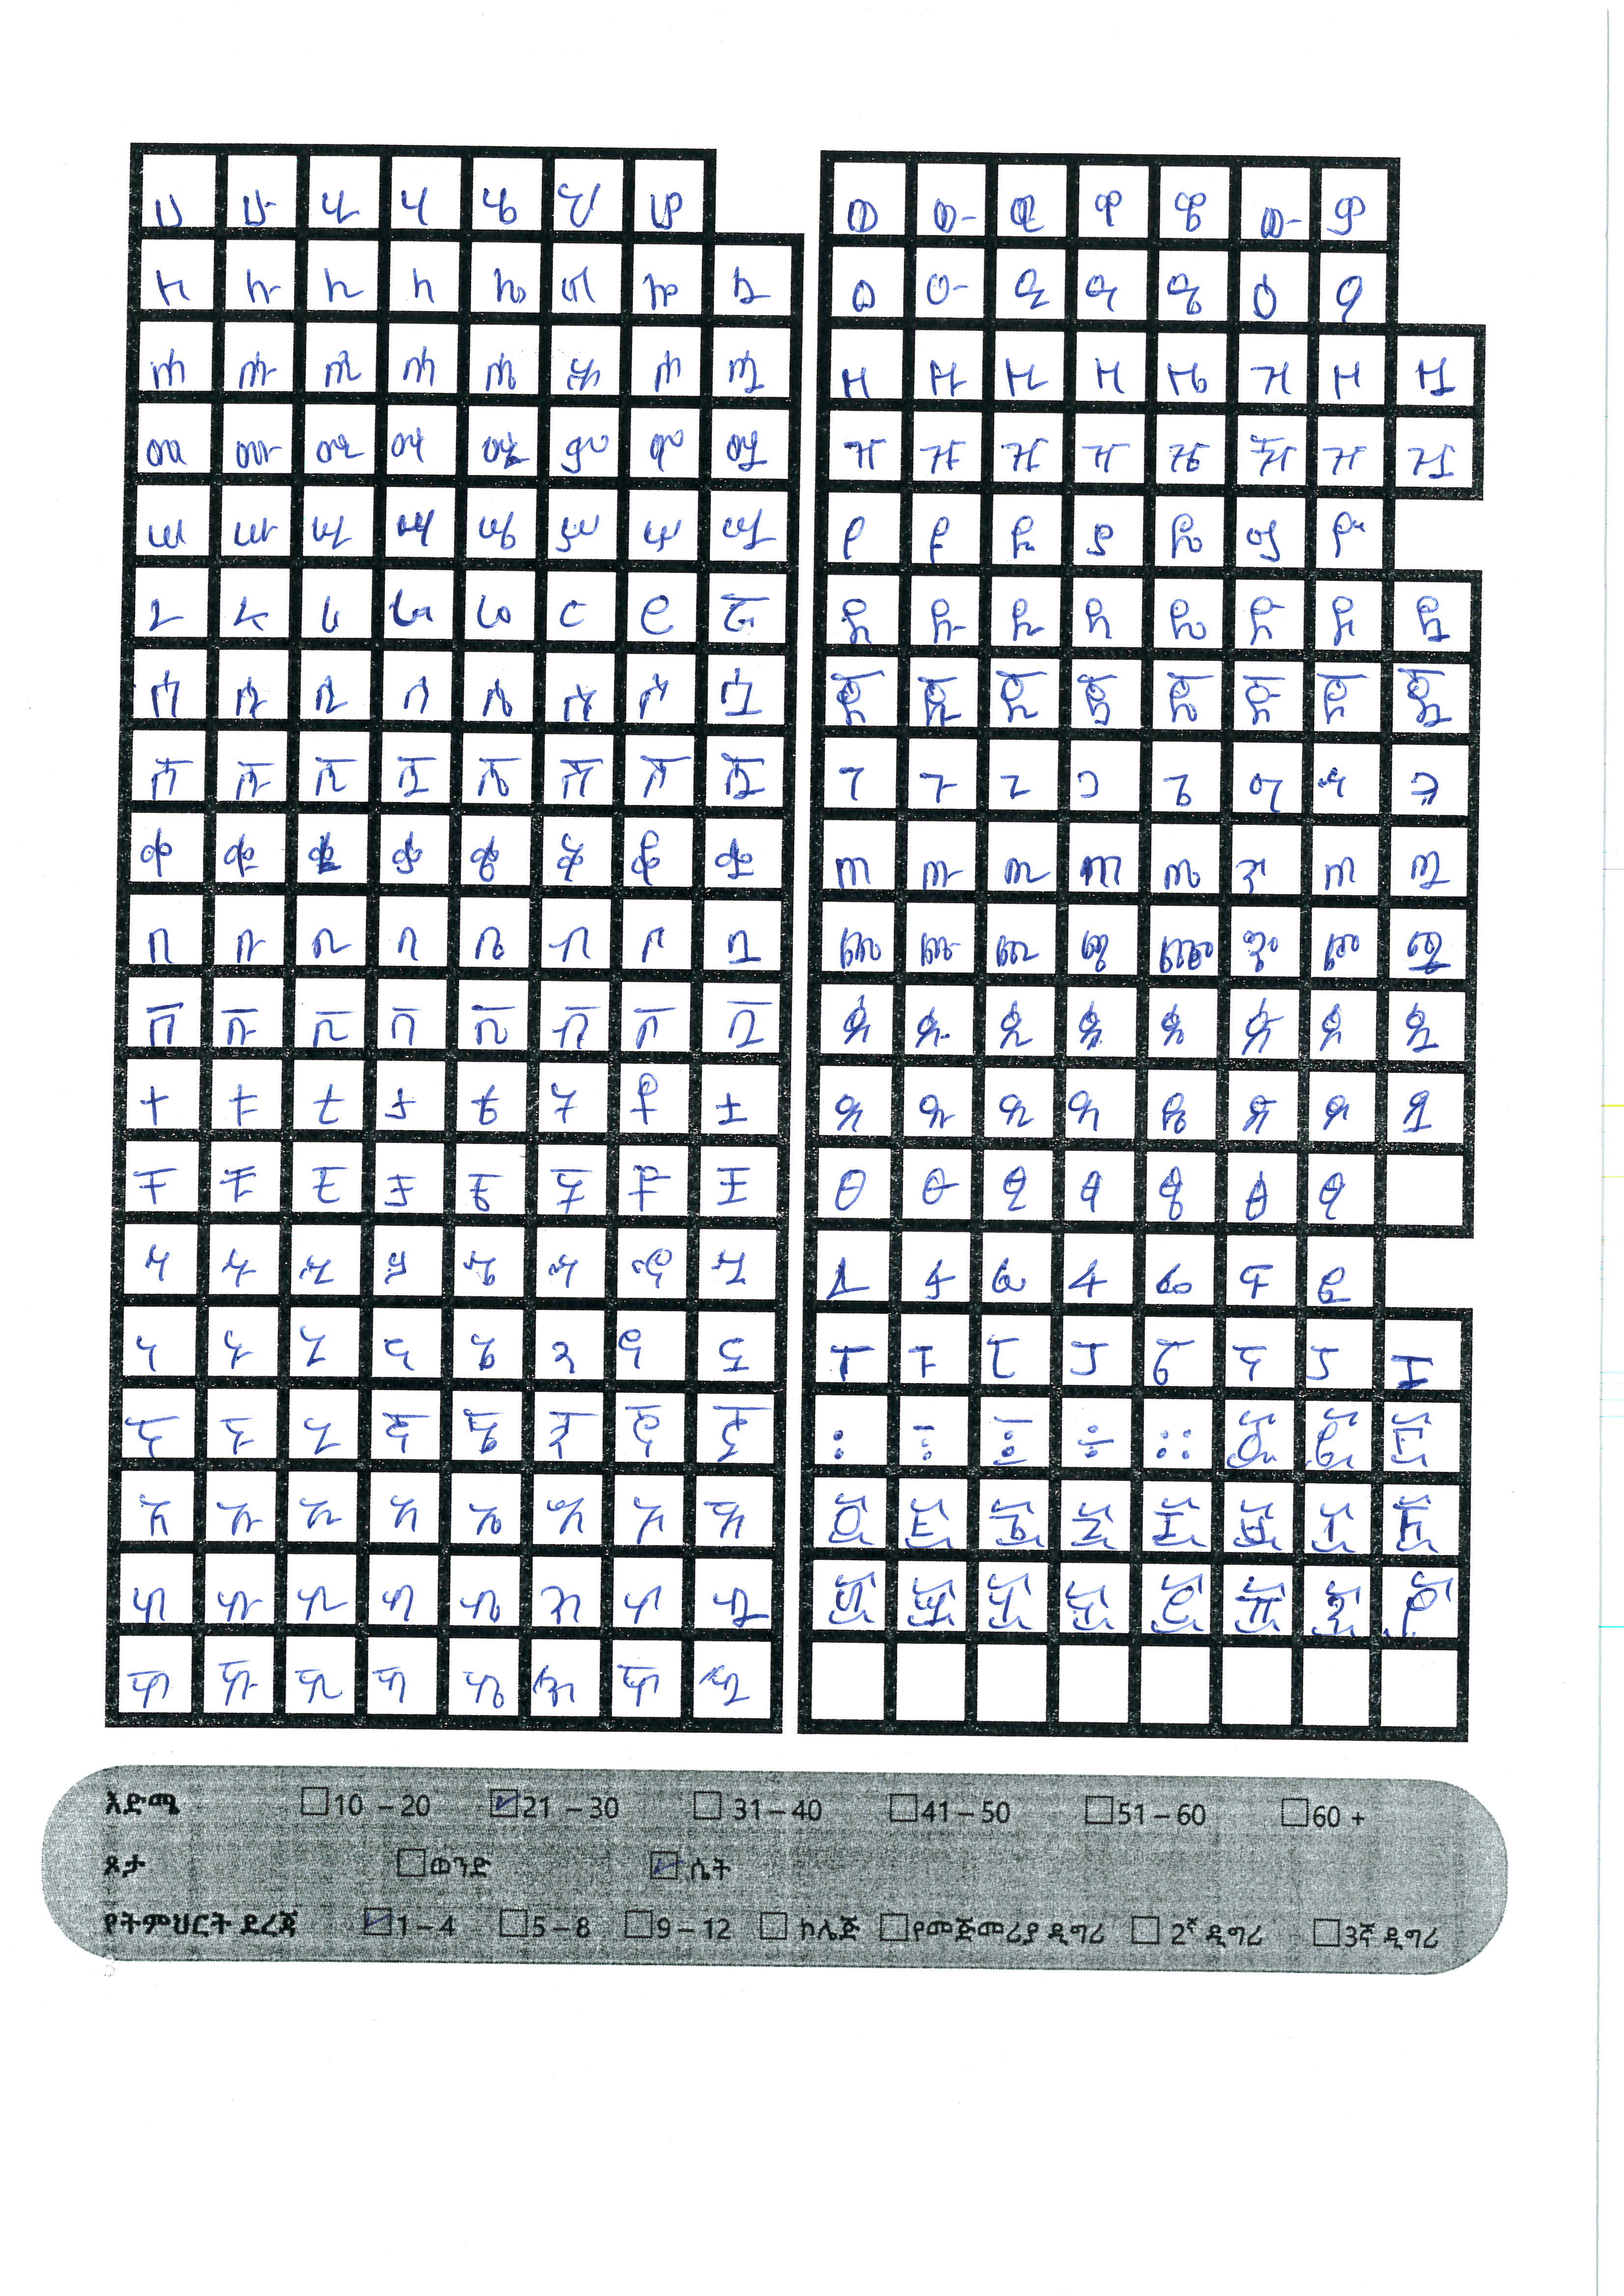 ሀ ሁ ሂ ሃ ሄ ህ ሆ
ለ ሉ ሊ ላ ሌ ል ሎ ሏ
ሐ ሑ ሒ ሓ ሔ ሕ ሖ ሗ
መ ሙ ሚ ማ ሜ ም ሞ ሟ
ሠ ሡ ሢ ሣ ሤ ሥ ሦ ሧ
ረ ሩ ሪ ራ ሬ ር ሮ ሯ
ሰ ሱ ሲ ሳ ሴ ስ ሶ ሷ
ሸ ሹ ሺ ሻ ሼ ሽ ሾ ሿ
ቀ ቁ ቂ ቃ ቄ ቅ ቆ ቋ
በ ቡ ቢ ባ ቤ ብ ቦ ቧ
ቨ ቩ ቪ ቫ ቬ ቭ ቮ ቯ
ተ ቱ ቲ ታ ቴ ት ቶ ቷ
ቸ ቹ ቺ ቻ ቼ ች ቾ ቿ
ኀ ኁ ኂ ኃ ኄ ኅ ኆ ኋ
ነ ኑ ኒ ና ኔ ን ኖ ኗ
ኘ ኙ ኚ ኛ ኜ ኝ ኞ ኟ
አ ኡ ኢ ኣ ኤ እ ኦ ኧ
ከ ኩ ኪ ካ ኬ ክ ኮ ኳ
ኸ ኹ ኺ ኻ ኼ ኽ ኾ ዃ
ወ ዉ ዊ ዋ ዌ ው ዎ
ዐ ዑ ዒ ዓ ዔ ዕ ዖ
ዘ ዙ ዚ ዛ ዜ ዝ ዞ ዟ
ዠ ዡ ዢ ዣ ዤ ዥ ዦ ዧ
የ ዩ ዪ ያ ዬ ይ ዮ
ደ ዱ ዲ ዳ ዴ ድ ዶ ዷ
ጀ ጁ ጂ ጃ ጄ ጅ ጆ ጇ
ገ ጉ ጊ ጋ ጌ ግ ጎ ጓ
ጠ ጡ ጢ ጣ ጤ ጥ ጦ ጧ
ጨ ጩ ጪ ጫ ጬ ጭ ጮ ጯ
ጰ ጱ ጲ ጳ ጴ ጵ ጶ ጷ
ጸ ጹ ጺ ጻ ጼ ጽ ጾ ጿ
ፀ ፁ ፂ ፃ ፄ ፅ ፆ
ፈ ፉ ፊ ፋ ፌ ፍ ፎ
ፐ ፑ ፒ ፓ ፔ ፕ ፖ ፗ
፡ ፣ ፤ ÷ ። ፩ ፪ ፫
፬ ፭ ፮ ፯ ፰ ፱ ፲ ፳
፴ ፵ ፶ ፷ ፸ ፹ ፺ ፻
እድሜ 10 – 20 21 – 30 31 – 40 41 – 50 51 – 60 60 +
ጾታ ወንድ ሴት
የትምህርት ደረጃ 1 – 4 5 – 8 9 – 12 ኮሌጅ የመጀመሪያ ዲግሪ 2ኛ ዲግሪ 3ኛ ዲግሪ